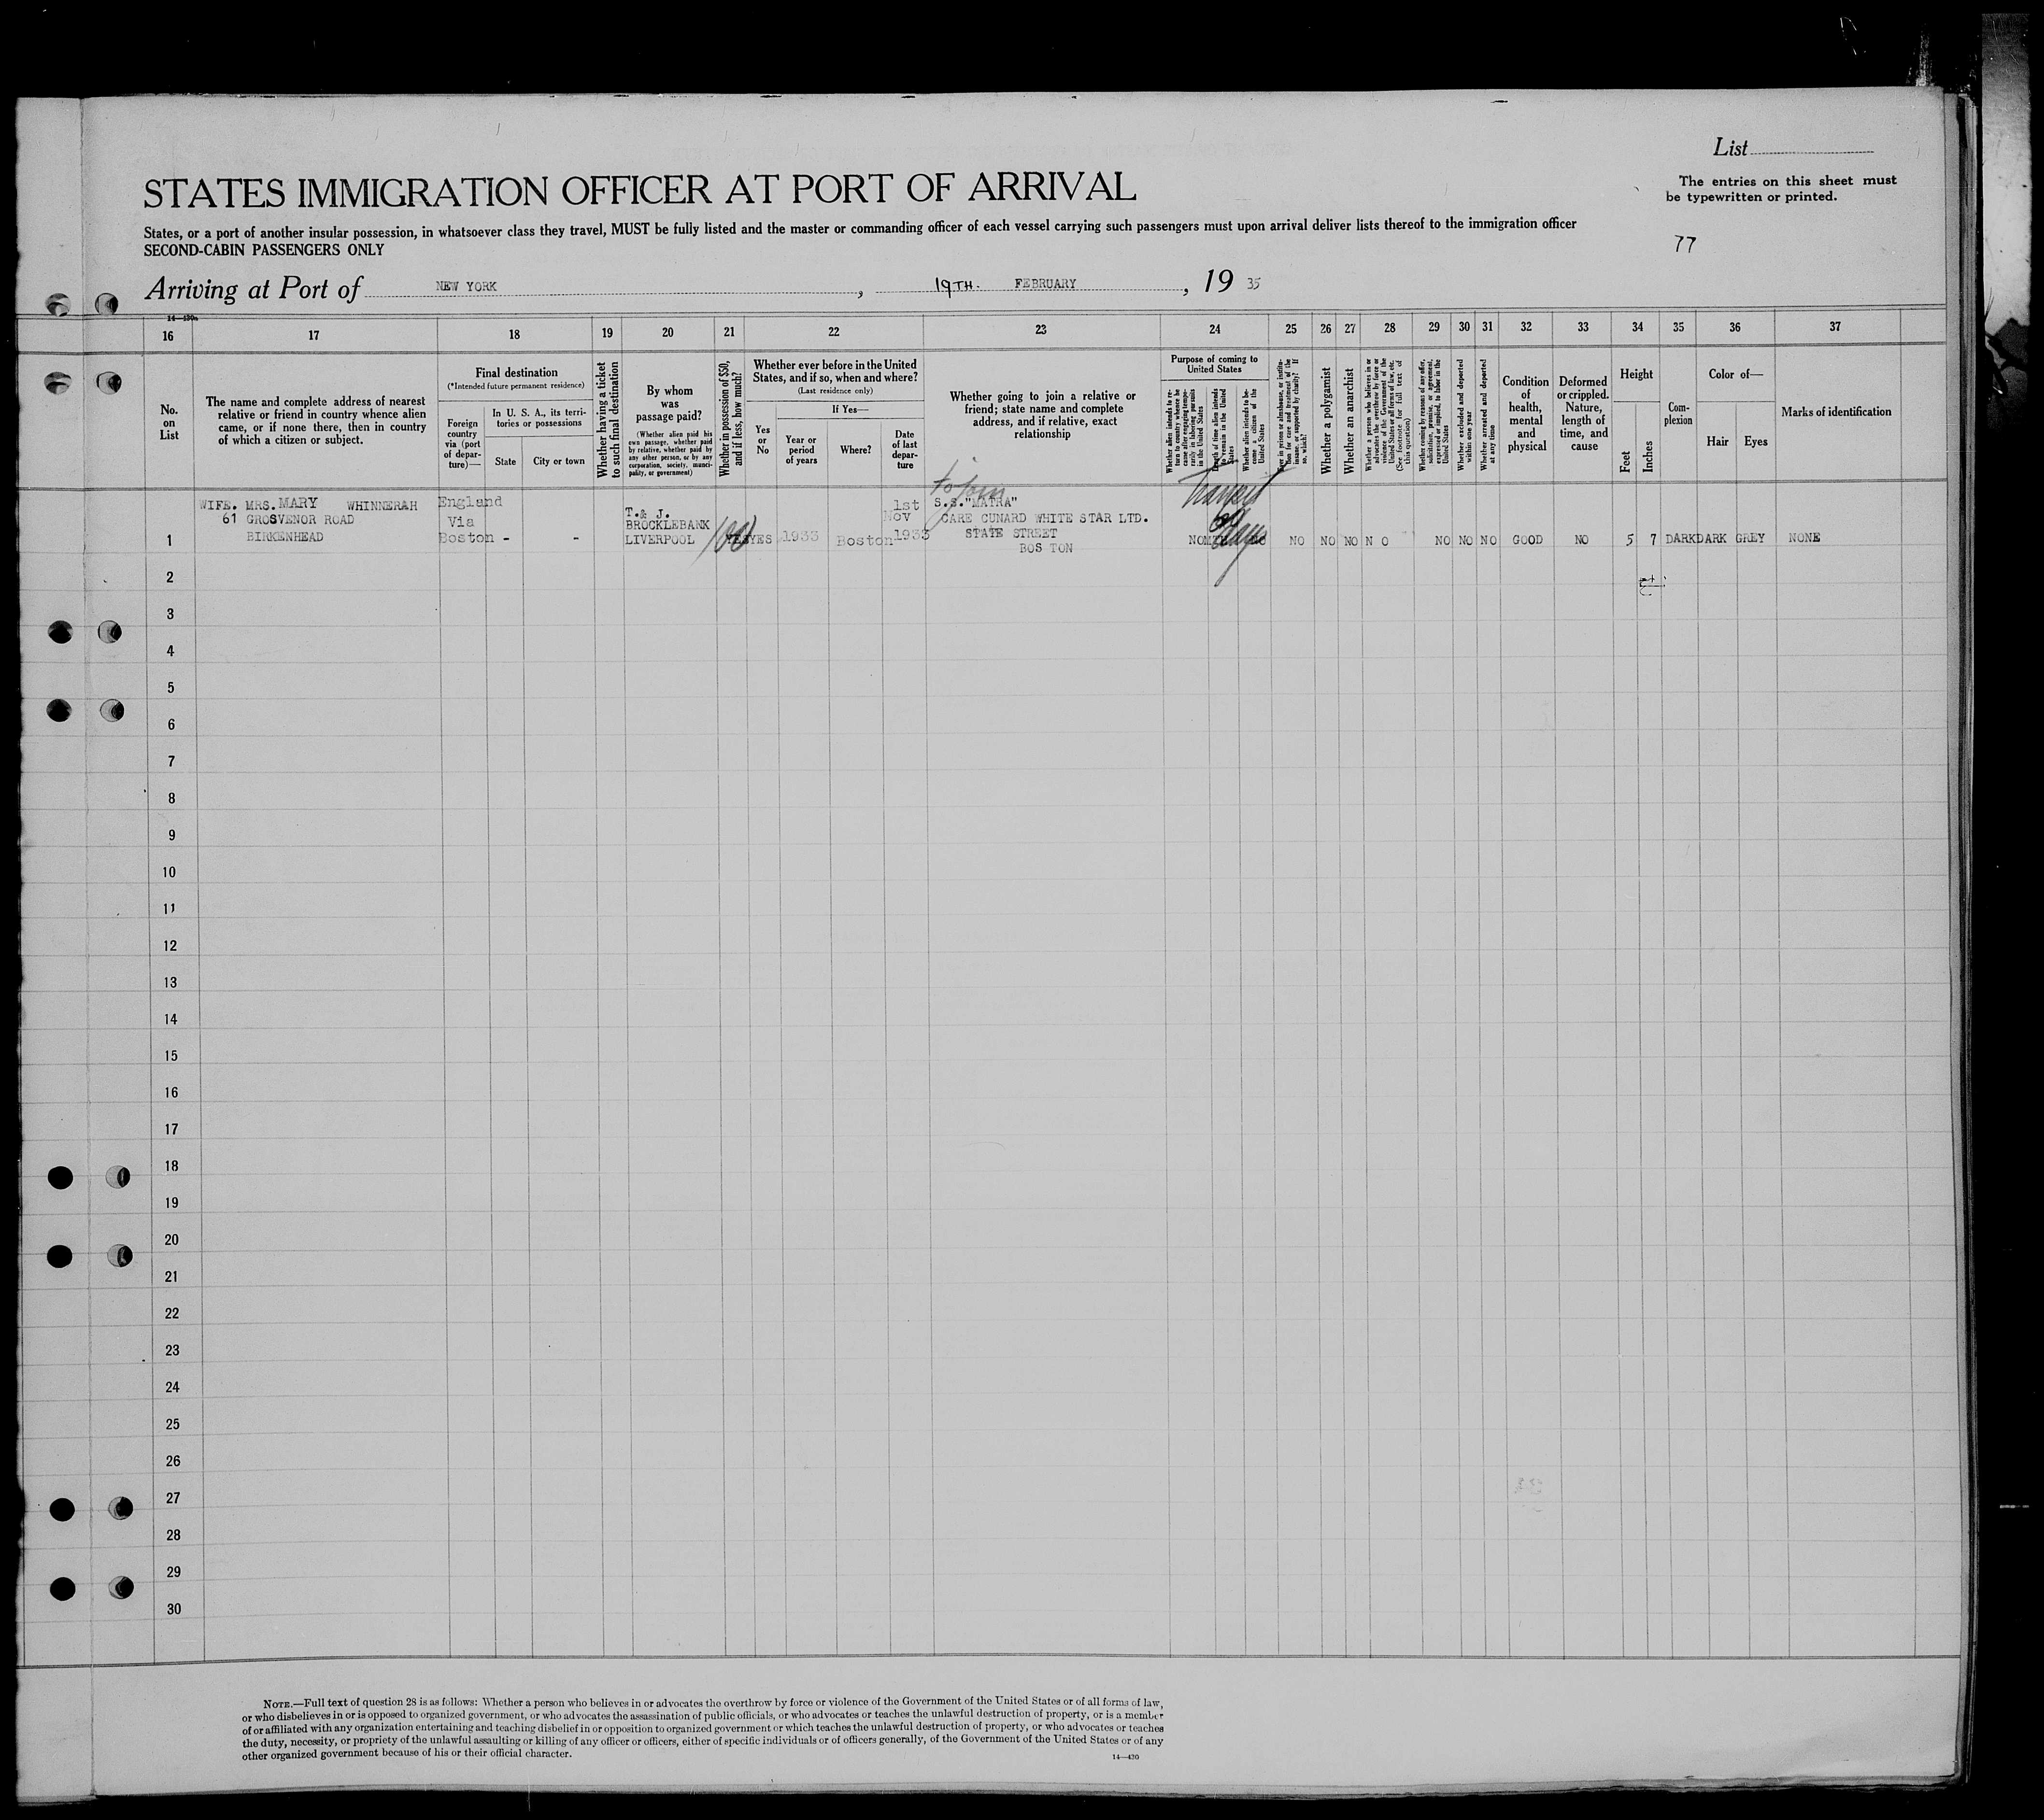 List
STATES IMMIGRATION OFFICER AT PORT OF ARRIVAL
The entries on this sheet must
be typewritten or printed.
States, or a port of another insular possession, in whatsoever class they travel, MUST be fully listed and the master or commanding officer of each vessel carrying such passengers must upon arrival deliver lists thereof to the immigration officer
SECOND-CABIN PASSENGERS ONLY
77
Arriving at Port of NEW YORK, 19TH. FEBRUARY, 19 35
16 17 18 19 20 21 22 23 24 25 26 27 28 29 30 31 32 33 34 35 36 37
No.
on
List
The name and complete address of nearest
relative or friend in country whence alien
came, or if none there, then in country
of which a citizen or subject.
Final destination
(*Intended future permanent residence)
Foreign
country
via (port
of depar-
ture)—
In U. S. A., its terri-
tories or possessions
State
City or town
Whether having a ticket
to such final destination
By whom
was
passage paid?
(Whether alien paid his
own passage, whether paid
by relative, whether paid by
any other person, or by any
corporation, society, munici-
pality, or government)
Whether in possession of $50,
and if less, how much?
Whether ever before in the United
States, and if so, when and where?
(Last residence only)
Yes
or
No
If Yes—
Year or
period
of years
Where?
Date
of last
depar-
ture
Whether going to join a relative or
friend; state name and complete
address, and if relative, exact
relationship
Purpose of coming to
United States
Whether alien intends to re-
turn to country whence he
came after engaging tempo-
rarily in laboring pursuits
in the United States
Length of time alien intends
to remain in the United
States
Whether alien intends to be-
come a citizen of the
United States
Ever in prison or almshouse, or institu-
tion for care and treatment of the
insane, or supported by charity? If
so, which?
Whether a polygamist
Whether an anarchist
Whether a person who believes in or
advocates the overthrow by force or
violence of the Government of the
United States or all forms of law, etc.
(See footnote for full text of
this question)
Whether coming by reasons of any offer,
solicitation, promise, or agreement,
expressed or implied, to labor in the
United States
Whether excluded and deported
within one year
Whether arrested and deported
at any time
Condition
of
health,
mental
and
physical
Deformed
or crippled.
Nature,
length of
time, and
cause
Height
Feet
Inches
Com-
plexion
Color of—
Hair
Eyes
Marks of identification
1
WIFE. MRS. MARY WHINNERAH
61 GROSVENOR ROAD
BIRKENHEAD
England
Via
Boston - -
T.& J.
BROCKLEBANK
LIVERPOOL
100
YES YES 1933 Boston
1st
Nov
1933
to join
S.S."MATRA"
CARE CUNARD WHITE STAR LTD.
STATE STREET
BOSTON
Transit
60 days
NO NO NO NO NO NO NO NO GOOD NO 5 7 DARK DARK GREY NONE
2
3
4
5
6
7
8
9
10
11
12
13
14
15
16
17
18
19
20
21
22
23
24
25
26
27
28
29
30
NOTE.—Full text of question 28 is as follows: Whether a person who believes in or advocates the overthrow by force or violence of the Government of the United States or of all forms of law,
or who disbelieves in or is opposed to organized government, or who advocates the assassination of public officials, or who advocates or teaches the unlawful destruction of property, or is a member
of or affiliated with any organization entertaining and teaching disbelief in or opposition to organized government or which teaches the unlawful destruction of property, or who advocates or teaches
the duty, necessity, or propriety of the unlawful assaulting or killing of any officer or officers, either of specific individuals or of officers generally, of the Government of the United States or of any
other organized government because of his or their official character.
14—430